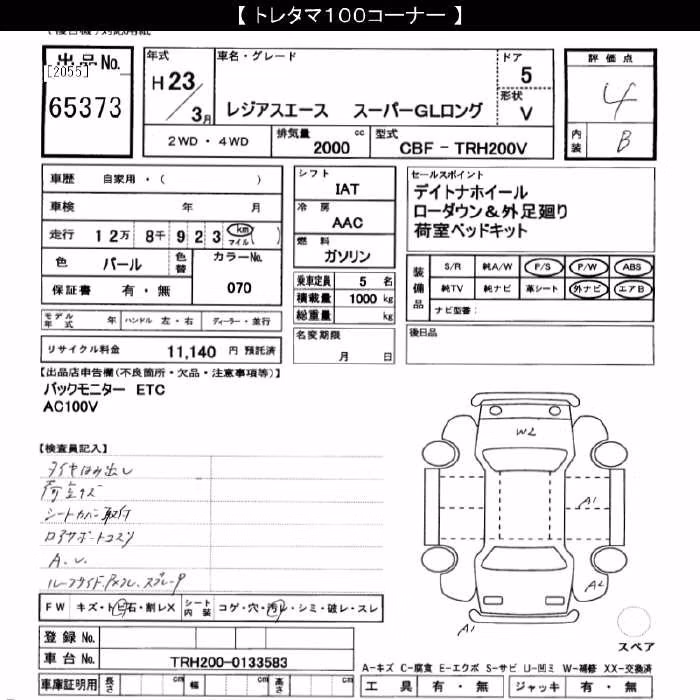 【 トレタマ１００コーナー 】
出品No.
[2055]
65373
年式
H 23
／ 3月
車名・グレード
レジアスエース　スーパーGLロング
ドア
5
形状
V
評価点
4
内装
B
2WD ・ 4WD
排気量
2000
cc
型式
CBF - TRH200V
車歴　自家用・（　　　）
車検　年　月
走行　1 2万 8千 9 2 3 km マイル （　）
色　パール
色替
カラーNo.
070
保証書　有・無
シフト
IAT
冷房
AAC
燃料
ガソリン
乗車定員　5 名
積載量　1000 kg
総重量　kg
セールスポイント
デイトナホイール
ローダウン＆外足廻り
荷室ベッドキット
装備品
S/R　純A/W　P/S　P/W　ABS
純TV　純ナビ　革シート　外ナビ　エアB
ナビ型番：
モデル年式　年　ハンドル　左・右　ディーラー・並行
リサイクル料金　11,140　円 預託済
名変期限
月　日
後日品
【出品店申告欄(不良箇所・欠品・注意事項等)】
バックモニター　ETC
AC100V
【検査員記入】
タイヤはみ出し
荷室キズ
シートカバー取付
ロアサポートコスリ
A.U.
W2
A1
A2
A1
スペア
FW　キズ・トビ石・割レX　シート内装　コゲ・穴・汚レ・シミ・破レ・スレ
登録 No.
車台 No.　TRH200-0133583
車庫証明用　長さ　cm　幅　cm　高さ　cm
A-キズ　C-腐食　E-エクボ　S-サビ　U-凹ミ　W-補修　XX-交換済
工具　有・無　ジャッキ　有・無